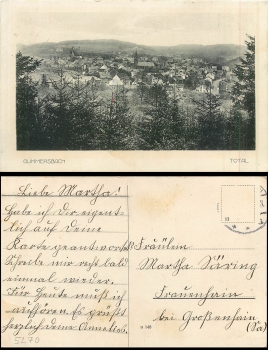 GUMMERSBACH
TOTAL
Liebe Martha!
Habe ich Dir eigent-
lich auf Deine
Karte geantwortet?
Schreibe mir recht bald
einmal wieder.
Für heute muß ich
aufhören. Es grüßt
herzlich Deine Annelies.
Fräulein
Martha Süring
Frauenhain
bei Großenhain
(Sa)
5270